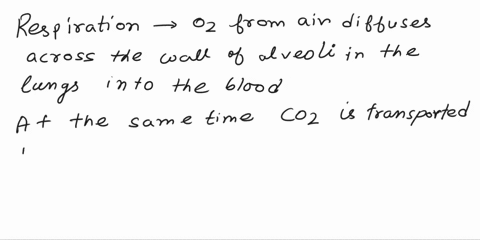 Respiration → O2 from air diffuses
across the wall of alveoli in the
lungs into the blood
At the same time CO2 is transported